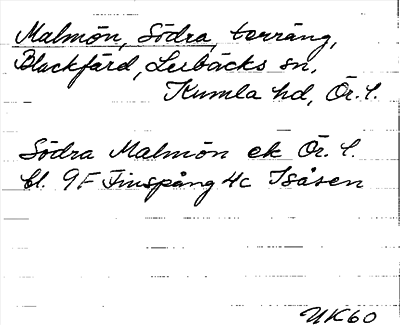 Malmön, Södra, terräng,
Blackfärd, Lerbäcks sn,
Kumla hd, Ör. l.
Södra Malmön ek Ör. l.
bl. 9F Finspång 4c Isåsen
UK60